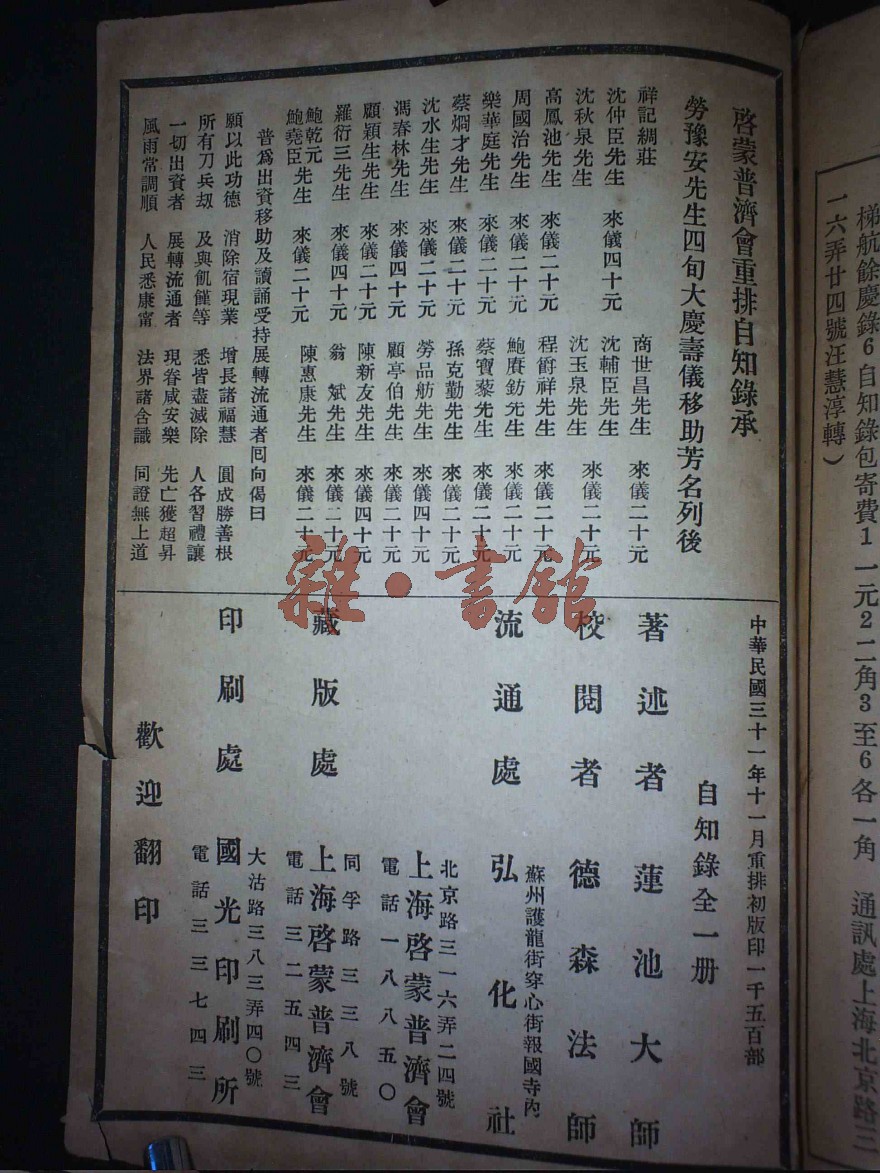 啓蒙普濟會重排自知錄承
勞豫安先生四旬大慶壽儀移助芳名列後
祥記綢莊
沈仲臣先生 來儀四十元
沈秋泉先生
高鳳池先生 來儀二十元
周國治先生 來儀二十元
樂華庭先生 來儀二十元
蔡烱才先生 來儀二十元
沈水生先生 來儀二十元
馮春林先生 來儀四十元
顧穎生先生 來儀二十元
羅衍三先生 來儀四十元
鮑乾元
鮑堯臣先生 來儀二十元
商世昌先生 來儀二十元
沈輔臣先生
沈玉泉先生 來儀二十元
程爵祥先生 來儀二十元
鮑賡鈁先生 來儀二十元
蔡寶藜先生 來儀二十元
孫克勤先生 來儀二十元
勞品舫先生 來儀四十元
顧亭伯先生 來儀二十元
陳新友先生 來儀四十元
翁斌先生 來儀二十元
陳惠康先生 來儀二十元
普爲出資移助及讀誦受持展轉流通者囘向偈曰
願以此功德 消除宿現業 增長諸福慧 圓成勝善根
所有刀兵刼 及與飢饉等 悉皆盡滅除 人各習禮讓
一切出資者 展轉流通者 現眷咸安樂 先亡獲超昇
風雨常調順 人民悉康甯 法界諸含識 同證無上道
中華民國三十一年十一月重排初版印一千五百部
自知錄全一册
著述者 蓮池大師
校閱者 德森法師
蘇州護龍街穿心街報國寺內
流通處 弘化社
北京路三一六弄二四號
上海啓蒙普濟會
電話一八八五〇
同孚路三三八號
藏版處 上海啓蒙普濟會
電話三二五四三
大沽路三八三弄四〇號
印刷處 國光印刷所
電話三三七四三
歡迎翻印
梯航餘慶錄6自知錄包寄費1一元2二角3至6各一角 通訊處上海北京路三
一六弄廿四號汪慧淳轉）
雜·書館